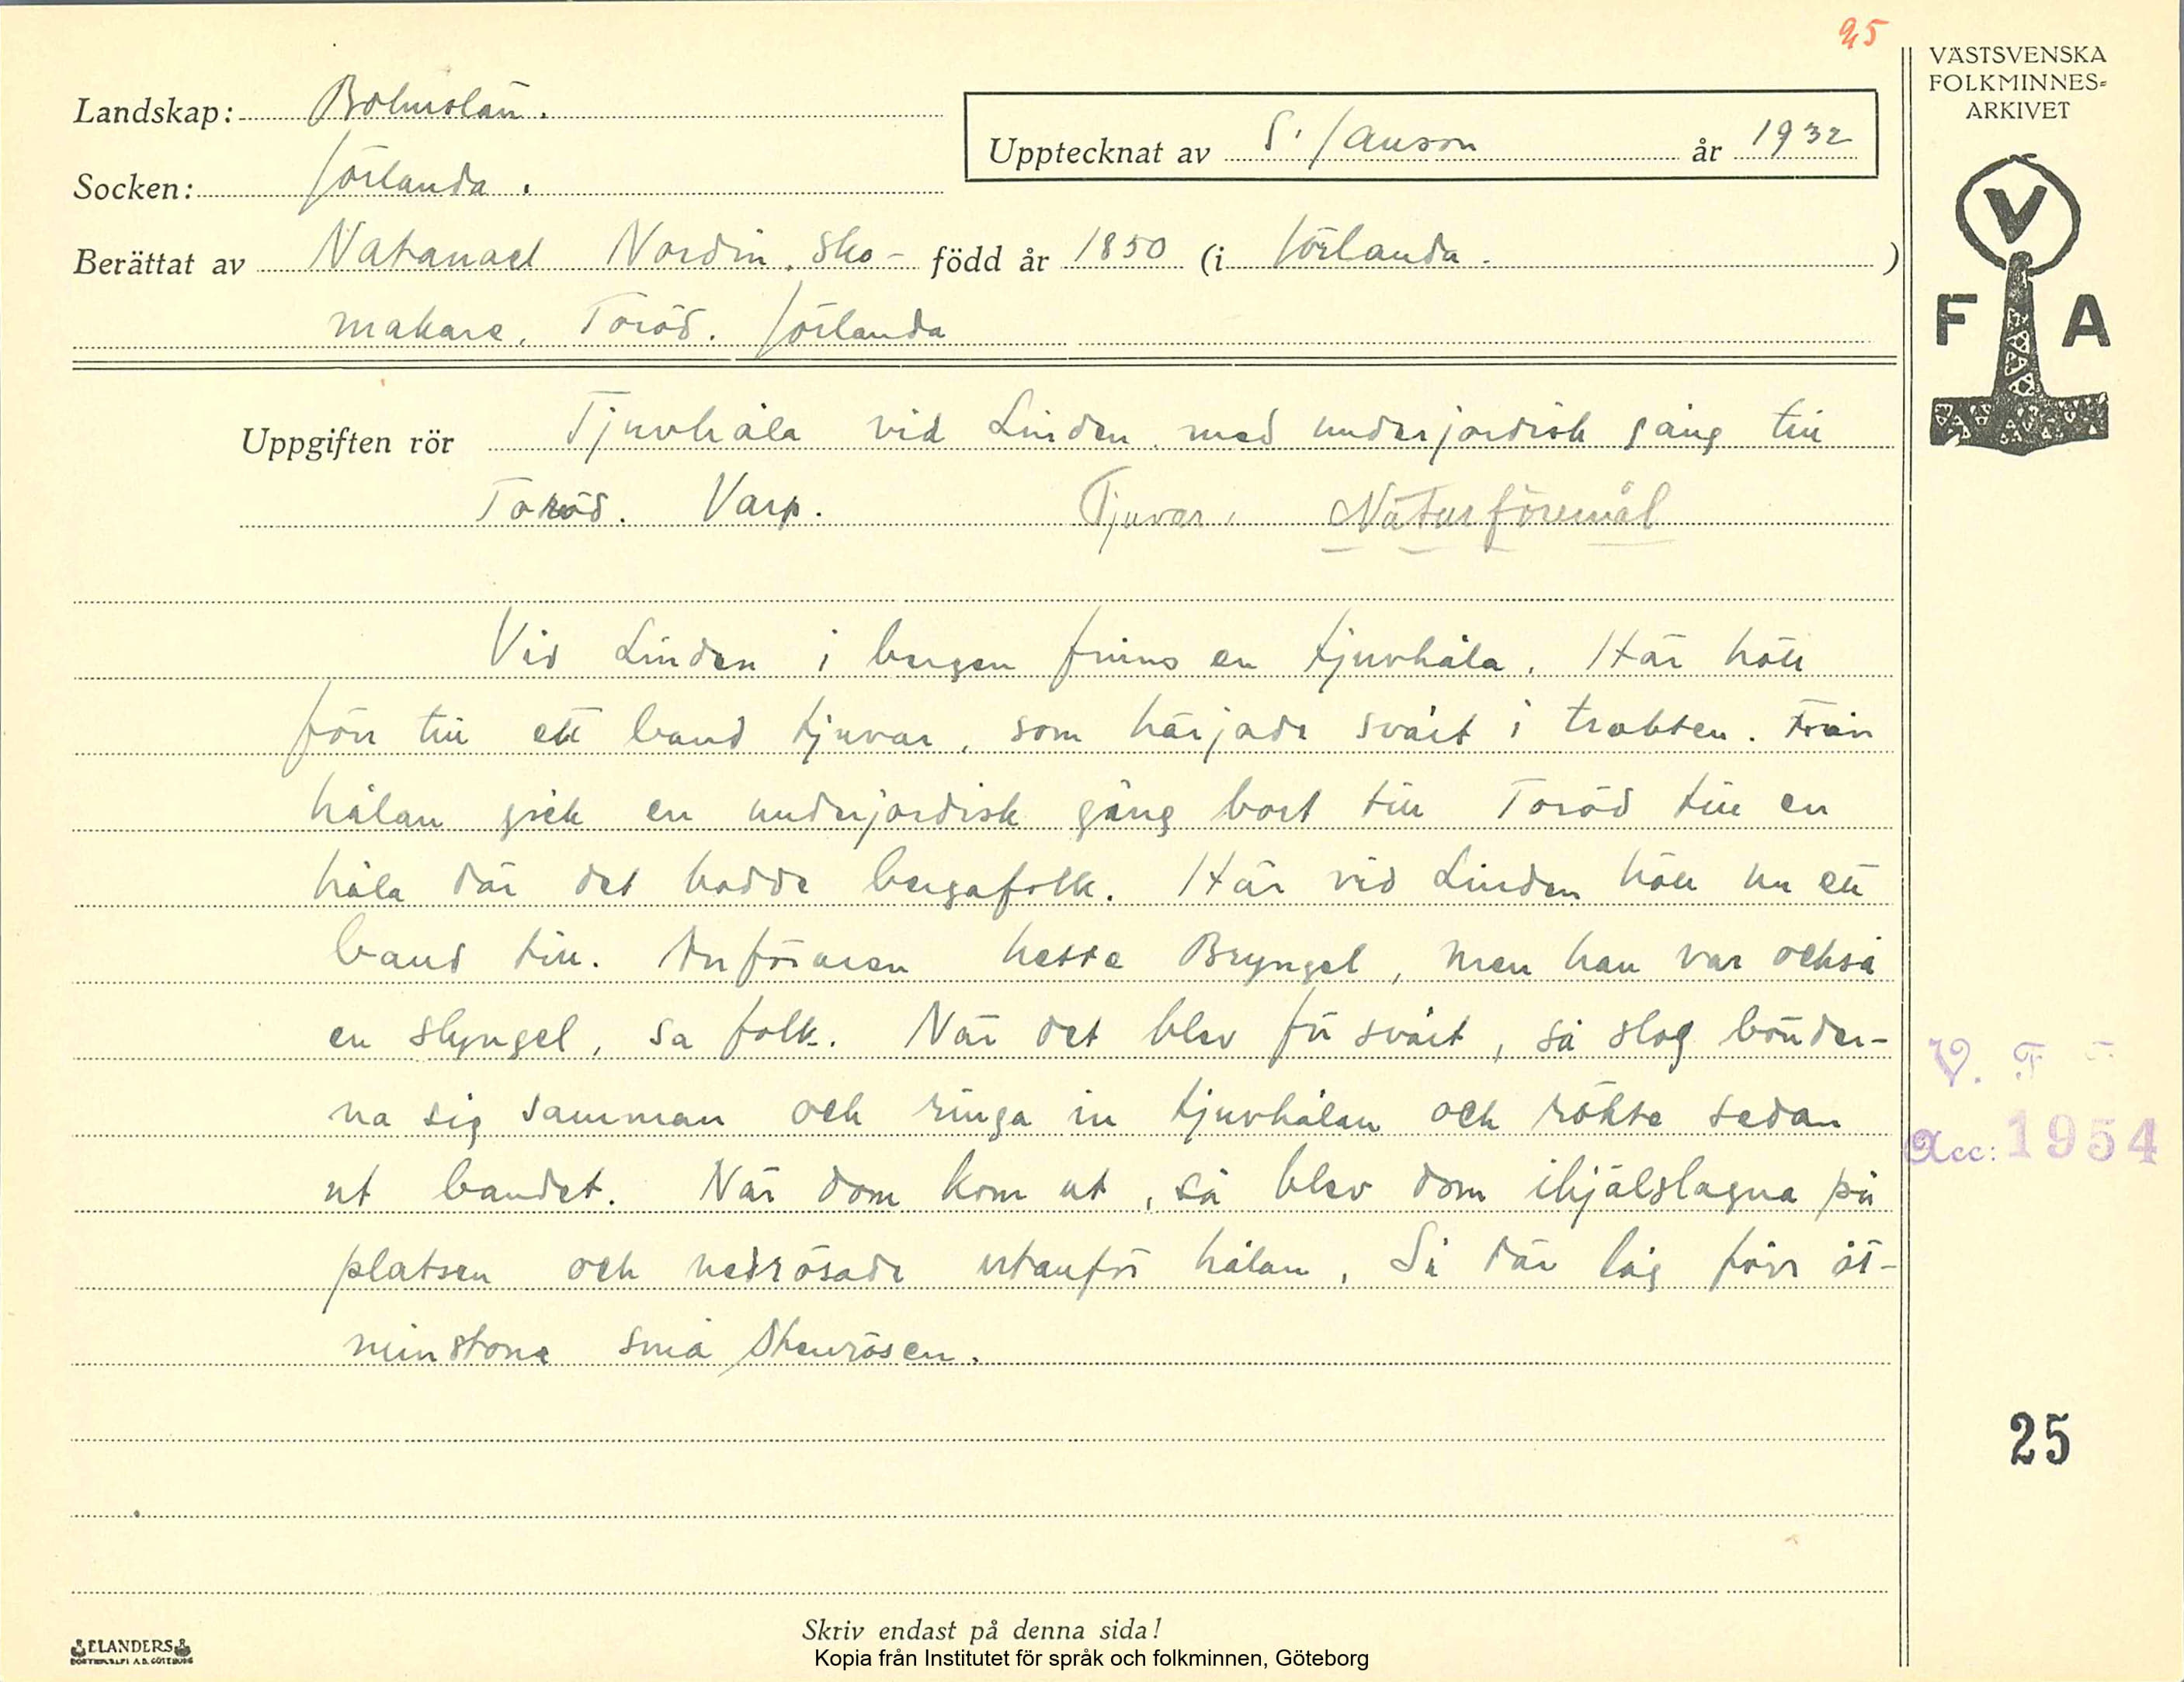 25
VÄSTSVENSKA
FOLKMINNES=
ARKIVET
Landskap: Bohuslän.
Upptecknat av S. Janson år 1932
Socken: Jörlanda.
Berättat av Natanael Nordin. Sko- född år 1850 (i Jörlanda. )
makare. Toröd. Jörlanda
V
F A
Uppgiften rör Tjuvhåla vid Linden, med underjordisk gång till
Toröd. Varp. Tjuvar. Naturföremål
Vid Linden i bergen finns en tjuvhåla. Här höll
förr till ett band tjuvar, som härjade svårt i trakten. Från
hålan gick en underjordisk gång bort till Toröd till en
håla där det bodde bergafolk. Här vid Linden höll nu ett
band till. Anföraren hette Bryngel, men han var också
en slyngel, sa folk. När det blev för svårt, så slog bönder-
na sig samman och ringa in tjuvhålan och rökte sedan
ut bandet. När dom kom ut, så blev dom ihjälslagna på
platsen och nedrösade utanför hålan. Så där låg förr åt-
minstone små stenrösen.
V. F
Acc: 1954
25
Skriv endast på denna sida!
ELANDERS
Kopia från Institutet för språk och folkminnen, Göteborg